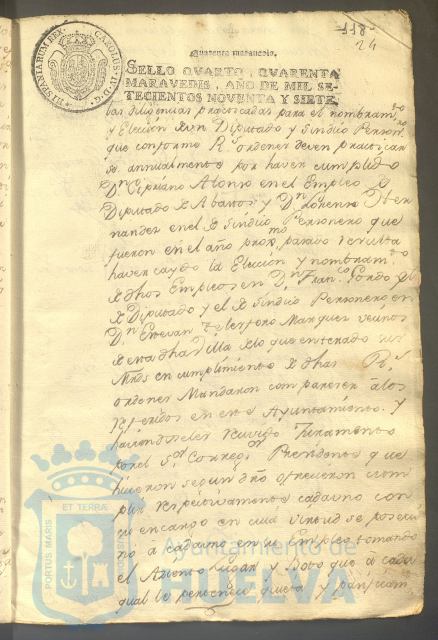 118
24
CAROLUS IV D G
HISPANIARUM REX
Quarenta maravedis.
SELLO QVARTO, QVARENTA
MARAVEDIS, AÑO DE MIL SE-
TECIENTOS NOVENTA Y SIETE.
las diligencias practicadas para el nombram.to
y Eleccion de un Diputado y Sindico Person.ro
que conforme R.s ordenes deven practicar
se annualmente por haver cumplido
Dn Cipriano Alonso en el Empleo de
Diputado de Abastos y Dn Lorenzo Her
nandez en el de Sindico Personero que
fueron en el año prox.mo pasado resulta
haver caydo la Eleccion y nombram.to
de dhos Empleos en Dn Fran.co Gordo
de Diputado y el de Sindico Personero en
Dn Estevan Telesforo Marquez vecinos
de esta dha Villa de lo que enterado
Mrds en cumplimiento de dhas R.s
ordenes Mandaron comparecer a los
referidos en este Ayuntamiento. y
haviendoseles recivido Juramento
por el S.or Correg.or Presidente que
hicieron segun dro ofrecieron cum
plir respectivamente cada uno con
su encargo en cuia virtud se posecio
no a cada uno en su Empleo tomando
el Asiento Lugar y Voto que a cada
qual le pertenece quieta y pasificam
PORTUS MARIS ET TERRAE CUSTODIA
Ayuntamiento de
HUELVA